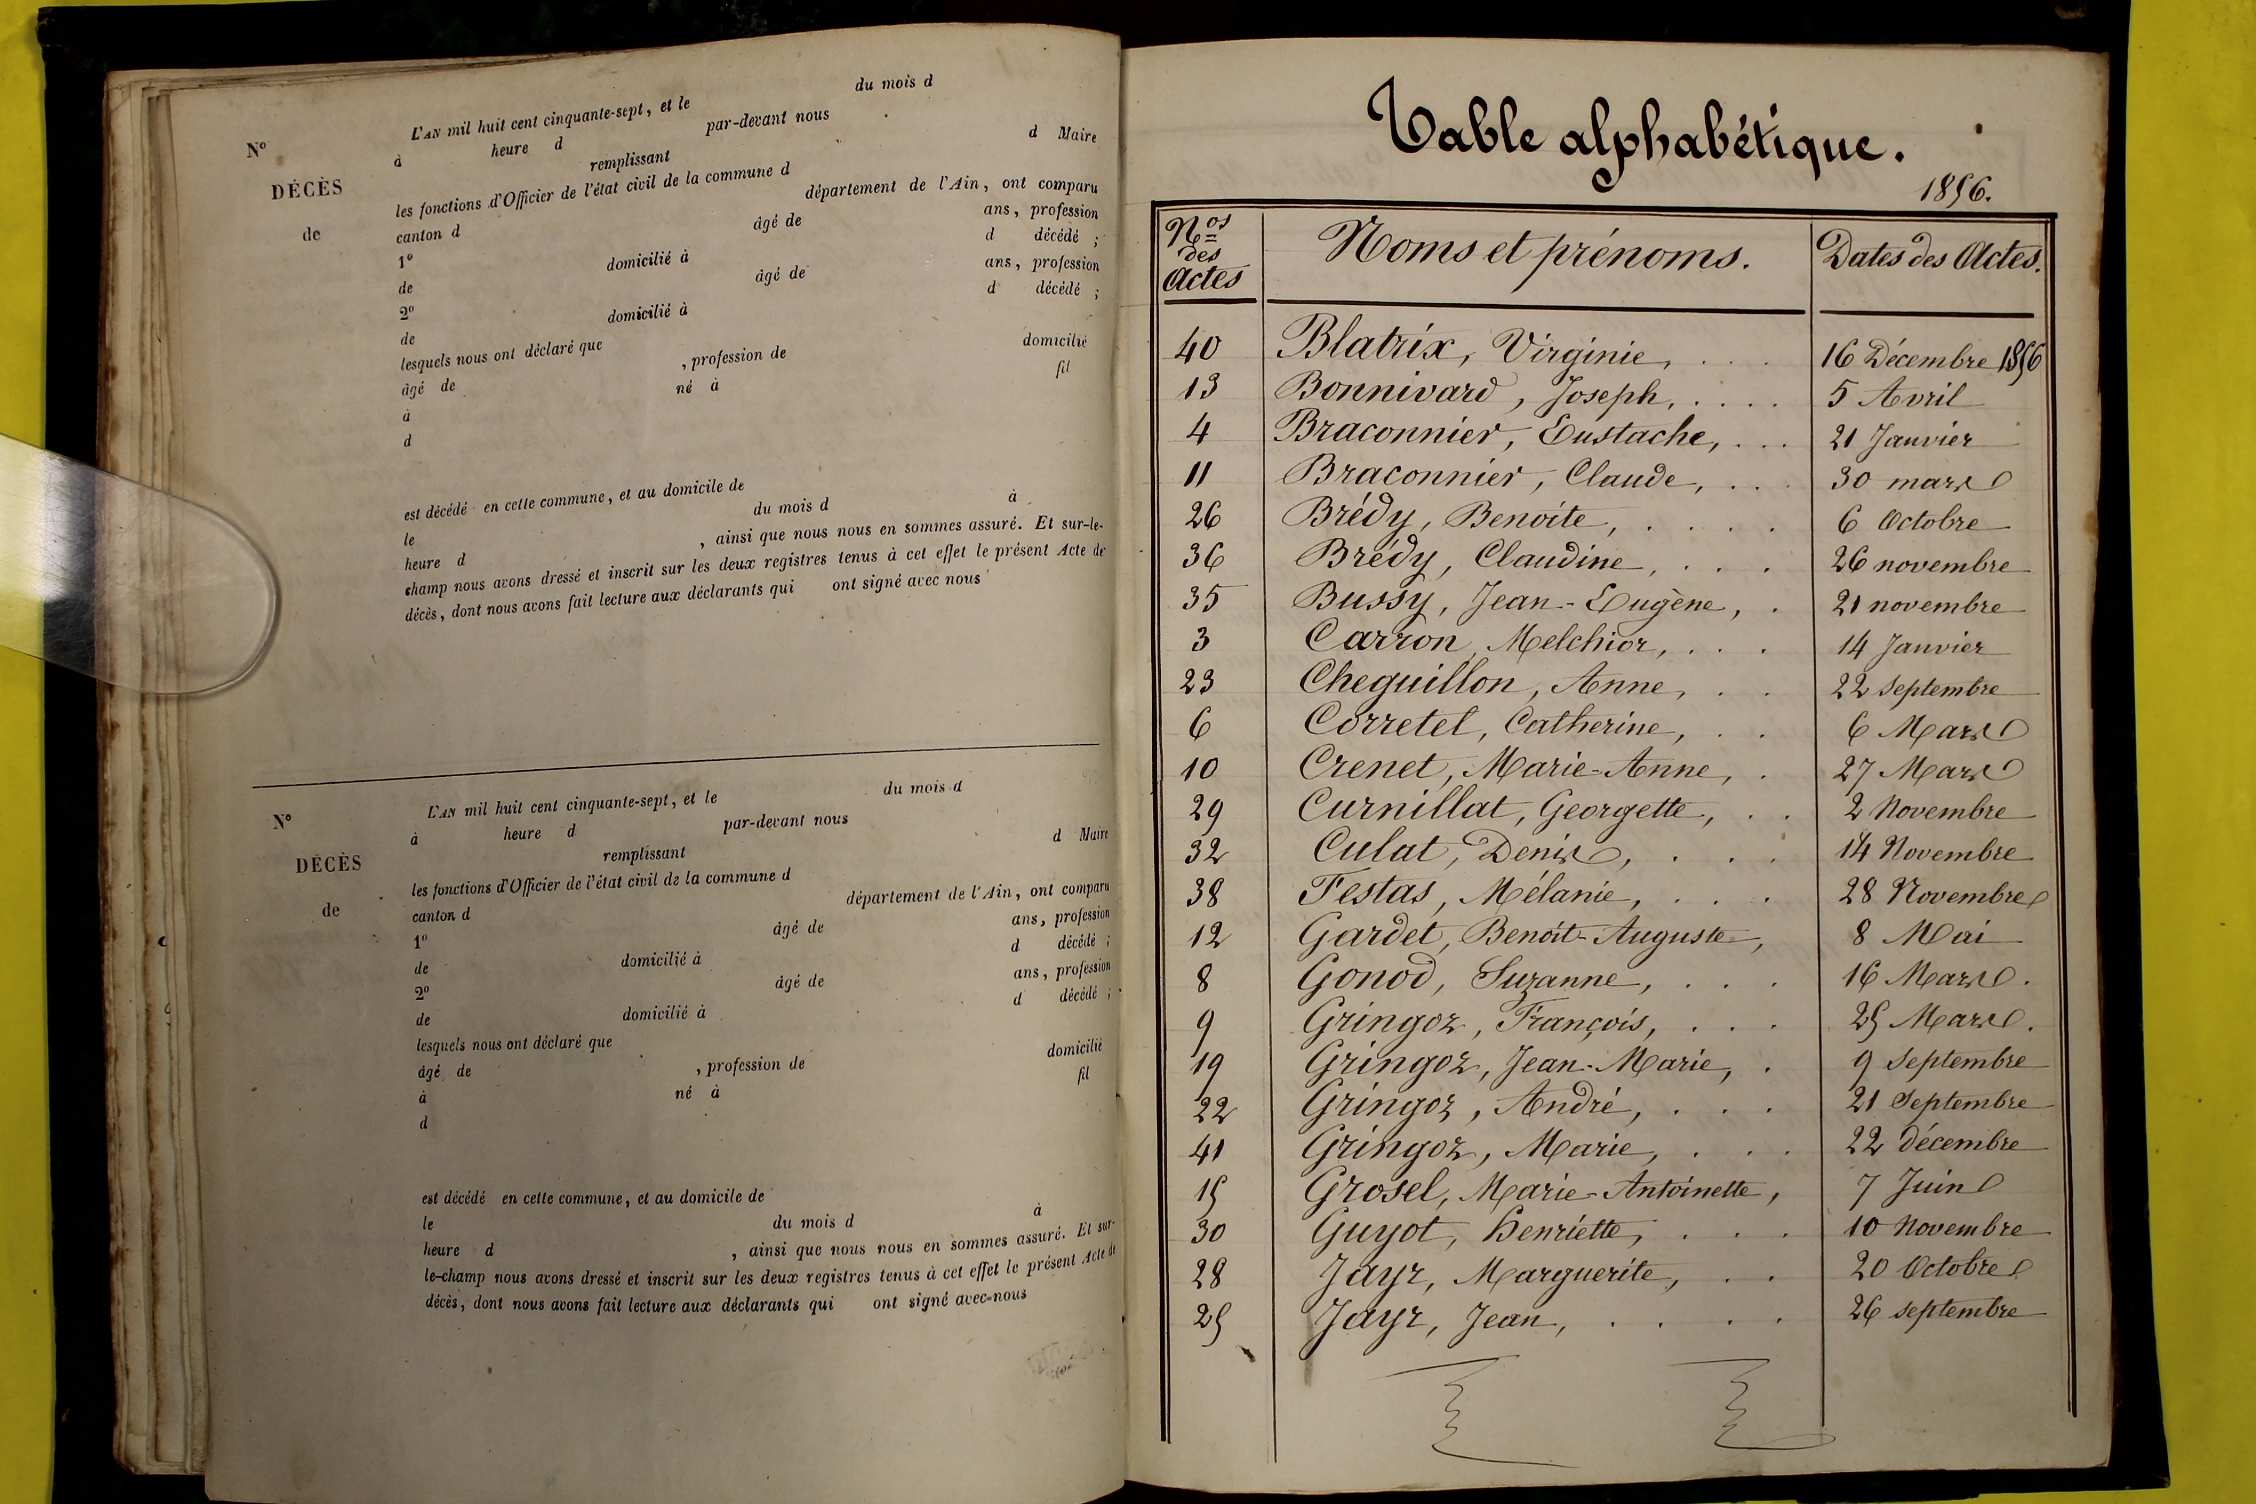 L'AN mil huit cent cinquante-sept, et le du mois d
N° à heure d par-devant nous
remplissant d Maire
DÉCÈS les fonctions d'Officier de l'état civil de la commune d
de canton d département de l'Ain, ont comparu
1° âgé de ans, profession
de domicilié à d décédé ;
2° âgé de ans, profession
de domicilié à d décédé ;
lesquels nous ont déclaré que
âgé de , profession de domicilié
à né à fil
d
est décédé en cette commune, et au domicile de
le du mois d à
heure d , ainsi que nous nous en sommes assuré. Et sur-le-
champ nous avons dressé et inscrit sur les deux registres tenus à cet effet le présent Acte de
décès, dont nous avons fait lecture aux déclarants qui ont signé avec nous
L'AN mil huit cent cinquante-sept, et le du mois d
N° à heure d par-devant nous
remplissant d Maire
DÉCÈS les fonctions d'Officier de l'état civil de la commune d
de canton d département de l'Ain, ont comparu
1° âgé de ans, profession
de domicilié à d décédé ;
2° âgé de ans, profession
de domicilié à d décédé ;
lesquels nous ont déclaré que
âgé de , profession de domicilié
à né à fil
d
est décédé en cette commune, et au domicile de
le du mois d à
heure d , ainsi que nous nous en sommes assuré. Et sur-
le-champ nous avons dressé et inscrit sur les deux registres tenus à cet effet le présent Acte de
décès, dont nous avons fait lecture aux déclarants qui ont signé avec nous
Table alphabétique.
1856.
Nos des Actes Noms et prénoms. Dates des Actes.
40 Blatrix, Virginie, . . . 16 Décembre 1856
13 Bonnivard, Joseph, . . . . 5 Avril
4 Braconnier, Eustache, . . . 21 Janvier
11 Braconnier, Claude, . . . 30 mars
26 Brédy, Benoite, . . . . 6 Octobre
36 Brédy, Claudine, . . . 26 novembre
35 Bussy, Jean-Eugène, . 21 novembre
3 Carron, Melchior, . . . 14 Janvier
23 Cheguillon, Anne, . . 22 septembre
6 Corretel, Catherine, . . 6 Mars
10 Crenet, Marie-Anne, . 27 Mars
29 Curnillat, Georgette, . . 2 Novembre
32 Culat, Denis, . . . 14 Novembre
38 Festas, Mélanie, . . . 28 Novembre
12 Gardet, Benoît-Auguste, 8 Mai
8 Gonod, Suzanne, . . . 16 Mars.
9 Gringoz, François, . . . 25 Mars.
19 Gringoz, Jean-Marie, . 9 Septembre
22 Gringoz, André, . . . 21 Septembre
41 Gringoz, Marie, . . . 22 décembre
15 Grosel, Marie-Antoinette, 7 Juin
30 Guyot, Henriette, . . . 10 Novembre
28 Jayr, Marguerite, . . 20 Octobre
25 Jayr, Jean, . . . . 26 septembre